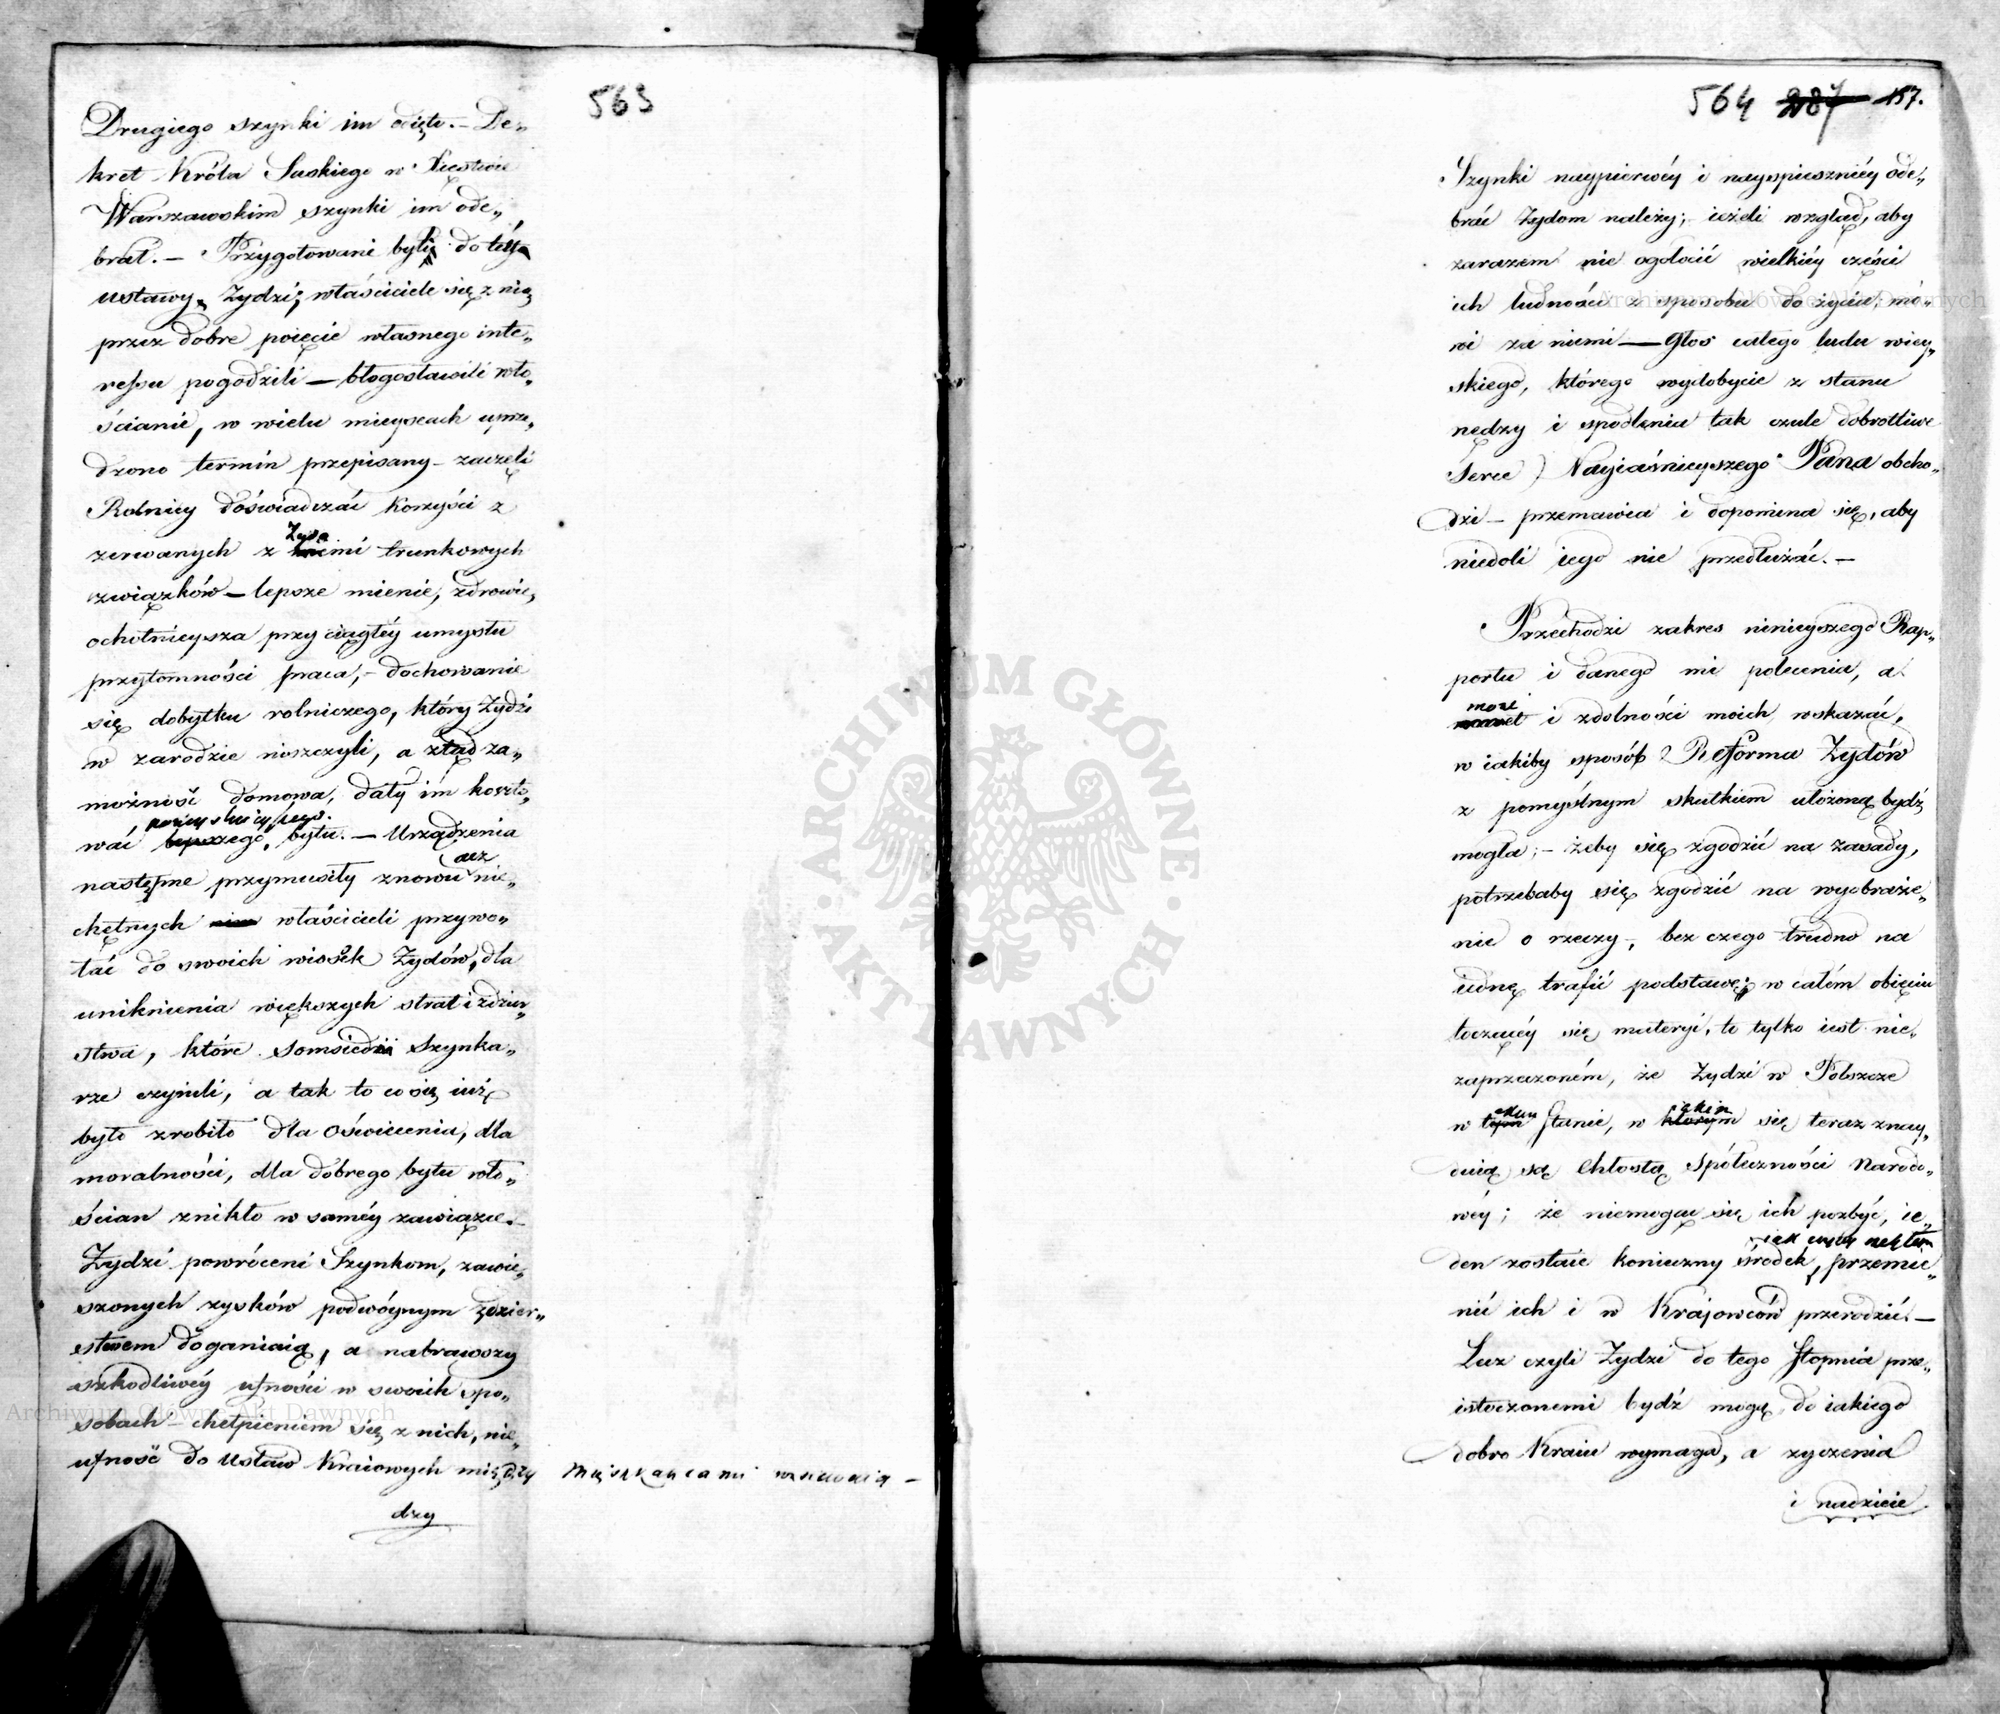 563
Drugiego szynki im odięto. – De„
kret Króla Saskiego w Xięstwie
Warszawskim szynki im ode„
brał. – Przygotowani byli do téy
ustawy Żydzi, właściciele się z nią
przez dobre poięcie własnego inte„
ressu pogodzili – błogosławili wło„
ścianie, w wielu mieyscach uprze„
dzono termin przepisany – zaczęli
Rolnicy doświadczać korzyści z
zerwanych z Żydami trunkowych
związków – lepsze mienie, zdrowie,
ochotnieysza przy ciągłéy umysłu
przytomności praca, – dochowanie
się dobytku rolniczego, który Żydzi
w zarodzie niszczyli, a ztąd za„
możność domowa, dały im koszto„
pomyślnieyszego
wać lepszego bytu. – Urządzenia
acz
następne przymusiły znowu nie„
chętnych właścicieli przywo„
łać do swoich wiosek Żydów, dla
uniknienia większych strat i zdzier„
stwa, które Somsiedzi Szynka„
rze czynili, a tak to co się iuż
było zrobiło dla Oświecenia, dla
moralności, dla dobrego bytu wło„
ścian znikło w saméy zawiązce. –
Żydzi powróceni Szynkom, zawie„
szonych zysków podwóynym zdzier„
stwem doganiaią, a nabrawszy
szkodliwéy ufności w swoich spo„
sobach – chełpieniem się z nich, nie„
ufność do Ustaw Kraiowych między Mieszkańcami wzniecaią –
dzy
564 287 157.
Szynki naypierwéy i nayspieszniéy ode„
brać Żydom należy; ieżeli wzgląd, aby
zarazem nie ogołocić wielkiéy części
ich ludności z sposobu do życia, mó„
wi za niemi – Głos całego ludu wiey„
skiego, którego wydobycie z stanu
nędzy i spodlenia tak czule dobrotliwe
Serce Nayiaśnieyszego Pana obcho„
dzi – przemawia i dopomina się, aby
niedoli iego nie przedłużać. –
Przechodzi zakres ninieyszego Rap„
portu i danego mi polecenia, a
może
nawet i zdolności moich wskazać,
w iakiby sposób Reforma Żydów
z pomyślnym skutkiem ułożoną bydź
mogła; – żeby się zgodzić na zasady,
potrzebaby się zgodzić na wyobraże„
nie o rzeczy, bez czego trudno na
iednę trafić podstawę; w całém obięciu
toczącéy się materyi, to tylko iest nie„
zaprzeczoném, że Żydzi w Polszcze
iakim
w tym Stanie, w którym się teraz znay„
duią są Chłostą Spółeczności Narodo„
wéy; że niemogąc się ich pozbyć, ie„
den zostaie konieczny środek, przemie„
nić ich i w Krajowców przerodzić. –
Lecz czyli Żydzi do tego stopnia prze„
istoczonemi bydź mogą, do iakiego
dobro Kraiu wymaga, a życzenia
i nadzieie
Archiwum Główne Akt Dawnych
Archiwum Główne Akt Dawnych
ARCHIWUM GŁÓWNE · AKT DAWNYCH ·